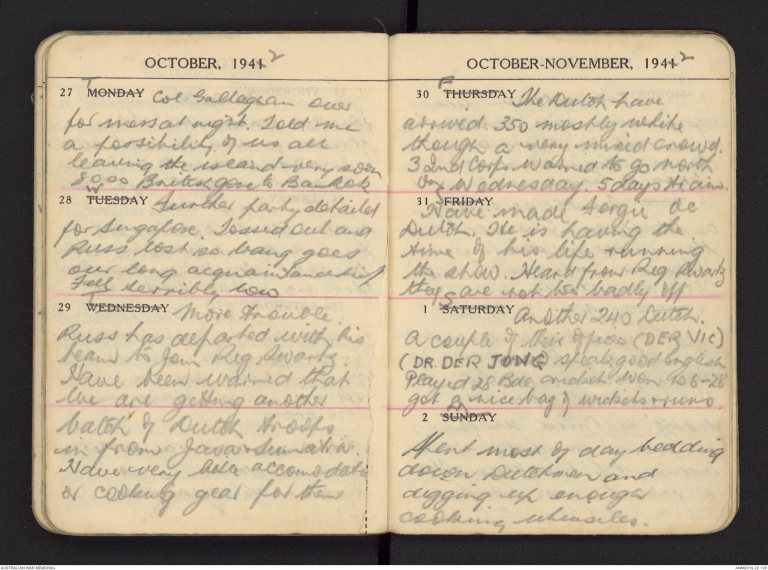 OCTOBER, 19412
27 T MONDAY Col Gallaghan over
for mess at night. Told me
a possibility of us all
leaving the island very soon
8000 British gone to Bankok
28 W TUESDAY Further party detailed
for Singapore. Tossed out and
Russ lost so bang goes
our long acquaintanceship
Fell terribly low
29 T WEDNESDAY More trouble
Russ has departed with his
team to join Reg Swartz.
Have been warned that
we are getting another
batch of Dutch troops
in from Java & Sumatra.
Have very little accomodati
or cooking gear for them
OCTOBER-NOVEMBER, 19412
30 F THURSDAY The Dutch have
arrived 350 mostly white
though a very mixed crowd.
32nd Corps warned to go north
on Wednesday. 5 days train.
31 S FRIDAY
Have made Fergie oc
Dutch. He is having the
time of his life running
the show. Heard from Reg Swartz
they are not too badly off
1 S SATURDAY Another 240 Dutch.
A couple of their offices (DER VIC)
(DR. DER JONG speaks good English
Played 28 Bde cricket won 90 6-28
got a nice bag of wickets & runs
2 M SUNDAY
Spent most of day bedding
down Dutchmen and
digging up enough
cooking utensiles.
AUSTRALIAN WAR MEMORIAL